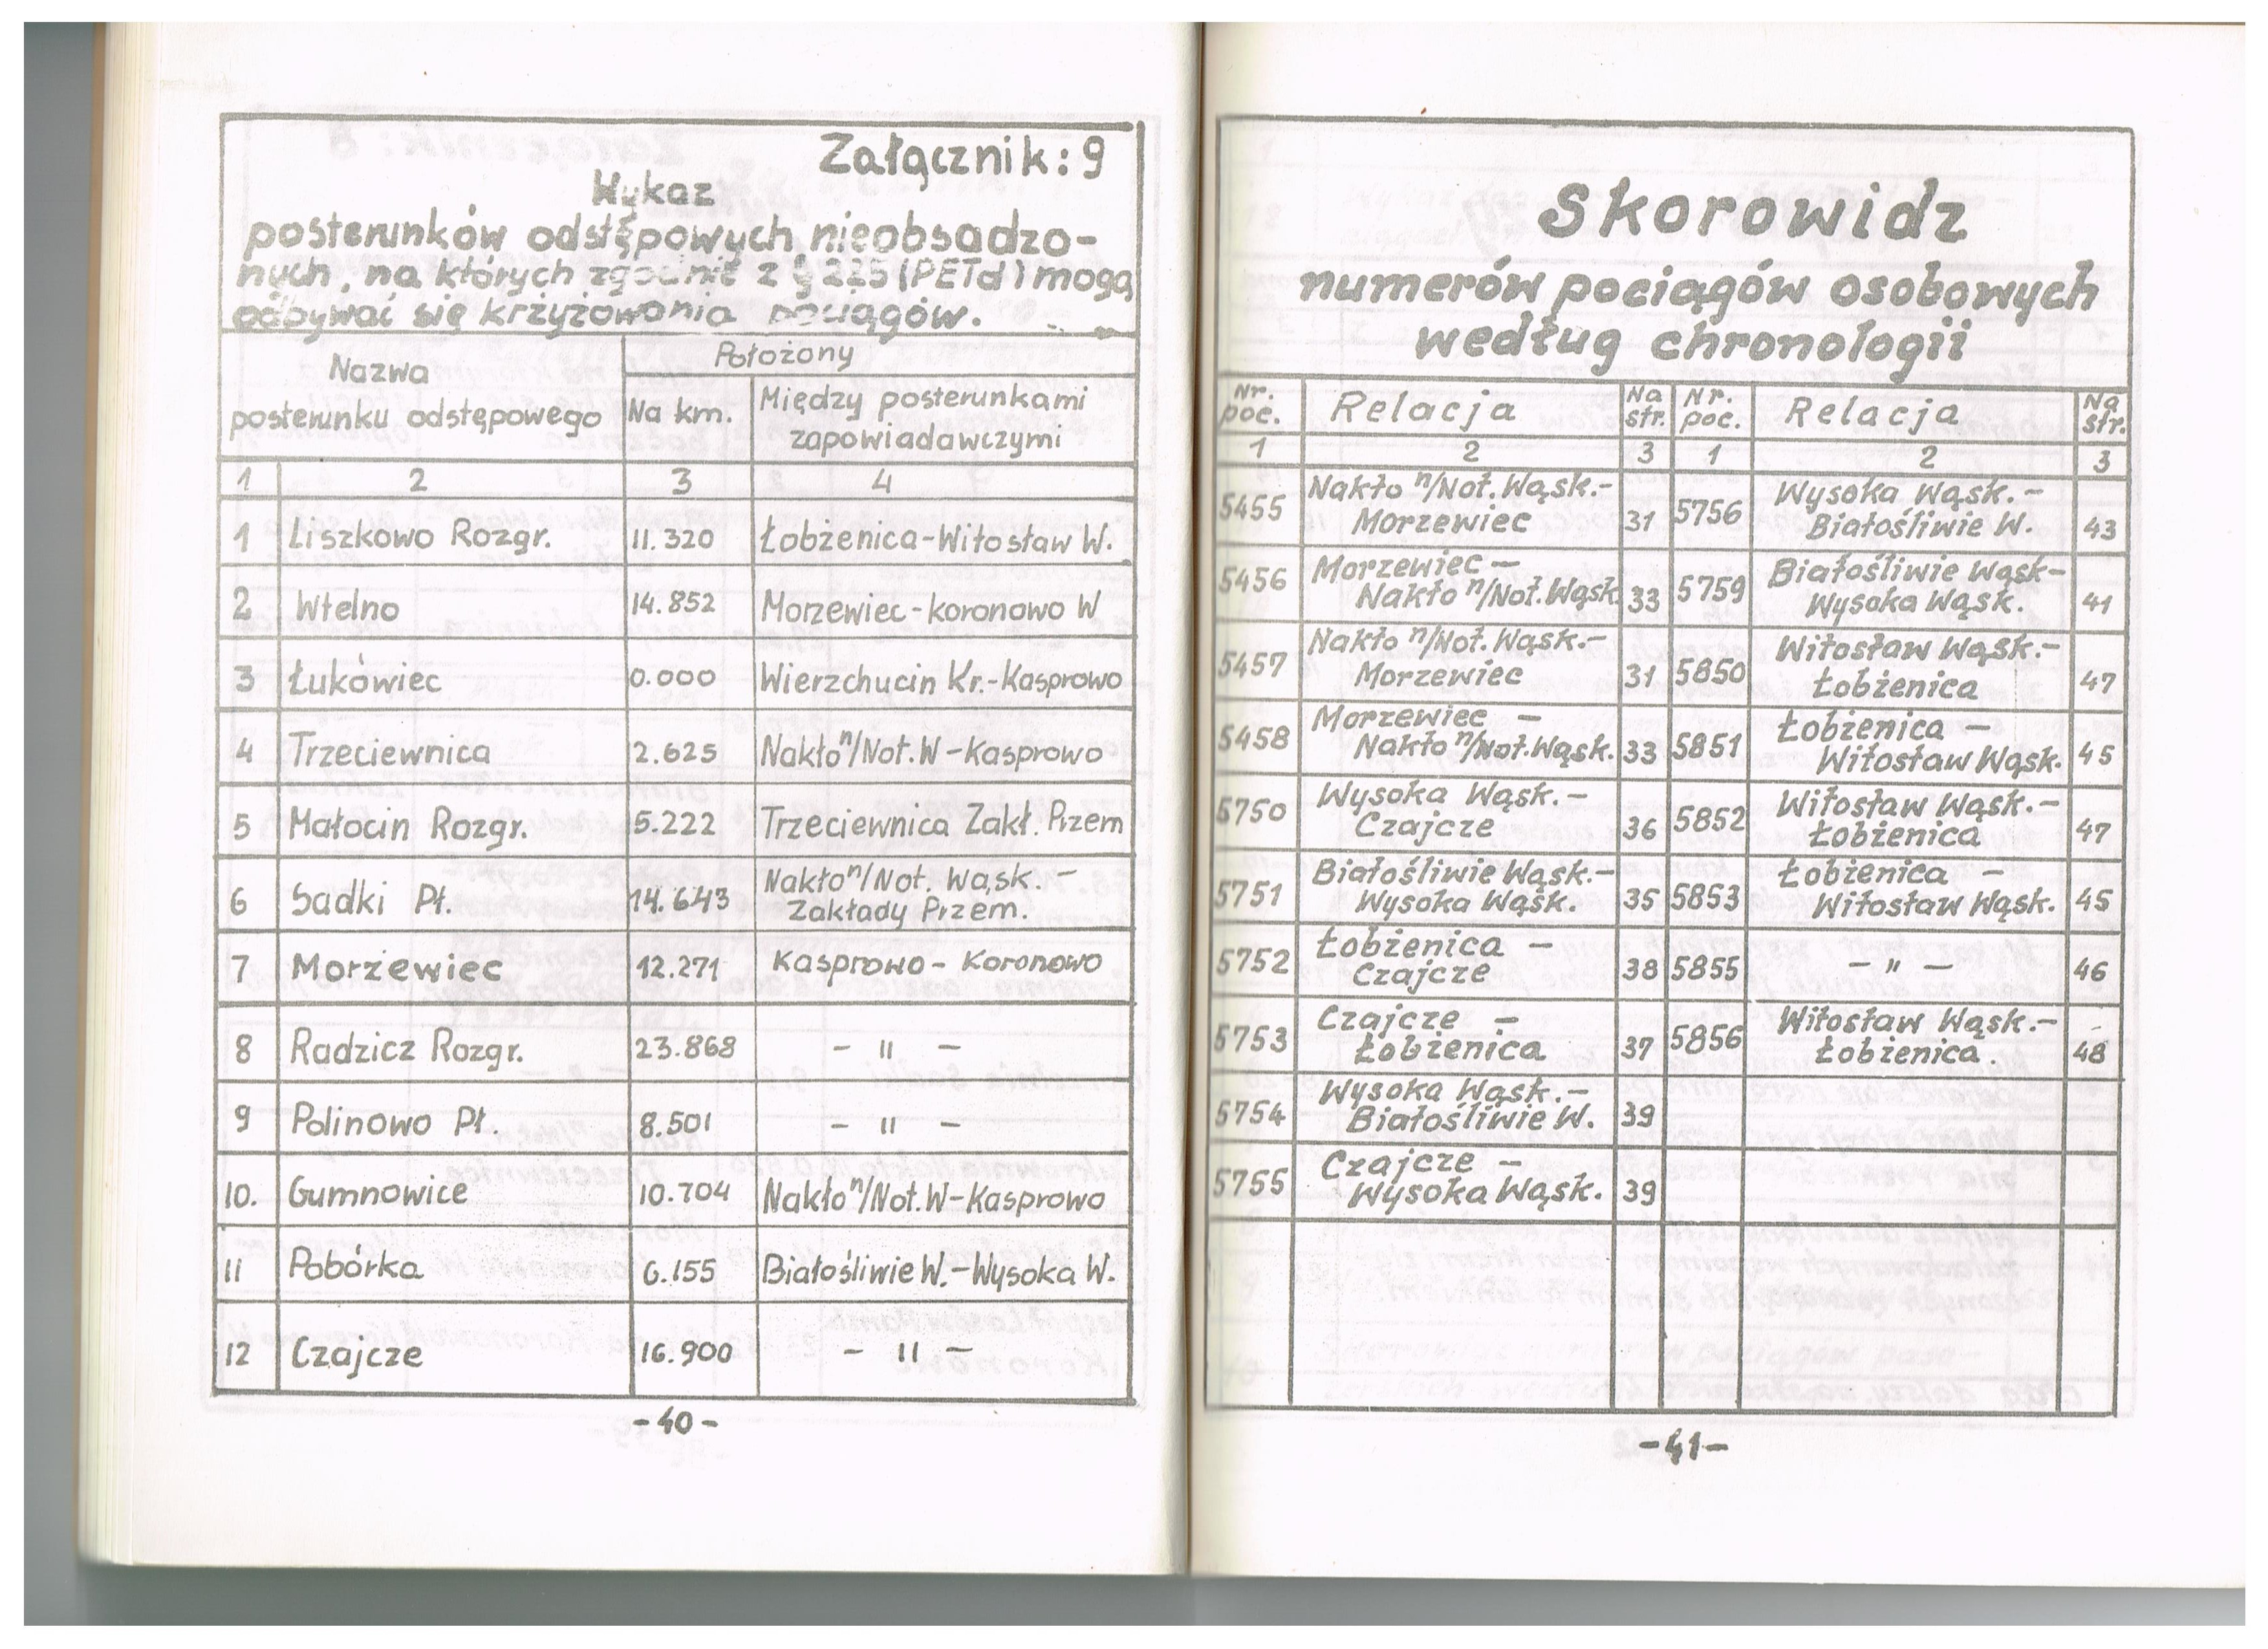 Załącznik: 9
Wykaz
posterunków odstępowych nieobsadzo-
nych, na których zgodnie z § 225 (PETd) mogą
odbywać się krzyżowania pociągów.
Nazwa
posterunku odstępowego
Położony
Na km.
Między posterunkami
zapowiadawczymi
1 2 3 4
1 Liszkowo Rozgr. 11.320 Łobżenica-Witosław W.
2 Wtelno 14.852 Morzewiec-koronowo W
3 Łukówiec 0.000 Wierzchucin Kr.-Kasprowo
4 Trzeciewnica 2.625 Nakło n/Not. W-Kasprowo
5 Małocin Rozgr. 5.222 Trzeciewnica Zakł. Przem
6 Sadki Pł. 14.643 Nakło n/Not. Wąsk. -
Zakłady Przem.
7 Morzewiec 12.271 Kasprowo - Koronowo
8 Radzicz Rozgr. 23.868 - " -
9 Polinowo Pł. 8.501 - " -
10. Gumnowice 10.704 Nakło n/Not. W-Kasprowo
11 Pobórka 6.155 Białośliwie W.-Wysoka W.
12 Czajcze 16.900 - " -
-40-
Skorowidz
numerów pociągów osobowych
według chronologii
Nr. poc. Relacja Na str. Nr. poc. Relacja Na str.
1 2 3 1 2 3
5455 Nakło n/Not. Wąsk.-
Morzewiec 31
5756 Wysoka Wąsk.-
Białośliwie W. 43
5456 Morzewiec -
Nakło n/Not. Wąsk. 33
5759 Białośliwie Wąsk-
Wysoka Wąsk. 41
5457 Nakło n/Not. Wąsk.-
Morzewiec 31
5850 Witosław Wąsk.-
Łobżenica 47
5458 Morzewiec -
Nakło n/Not. Wąsk. 33
5851 Łobżenica -
Witosław Wąsk. 45
5750 Wysoka Wąsk.-
Czajcze 36
5852 Witosław Wąsk.-
Łobżenica 47
5751 Białośliwie Wąsk.-
Wysoka Wąsk. 35
5853 Łobżenica -
Witosław Wąsk. 45
5752 Łobżenica -
Czajcze 38
5855 - " - 46
5753 Czajcze -
Łobżenica 37
5856 Witosław Wąsk.-
Łobżenica. 48
5754 Wysoka Wąsk.-
Białośliwie W. 39
5755 Czajcze -
Wysoka Wąsk. 39
-41-